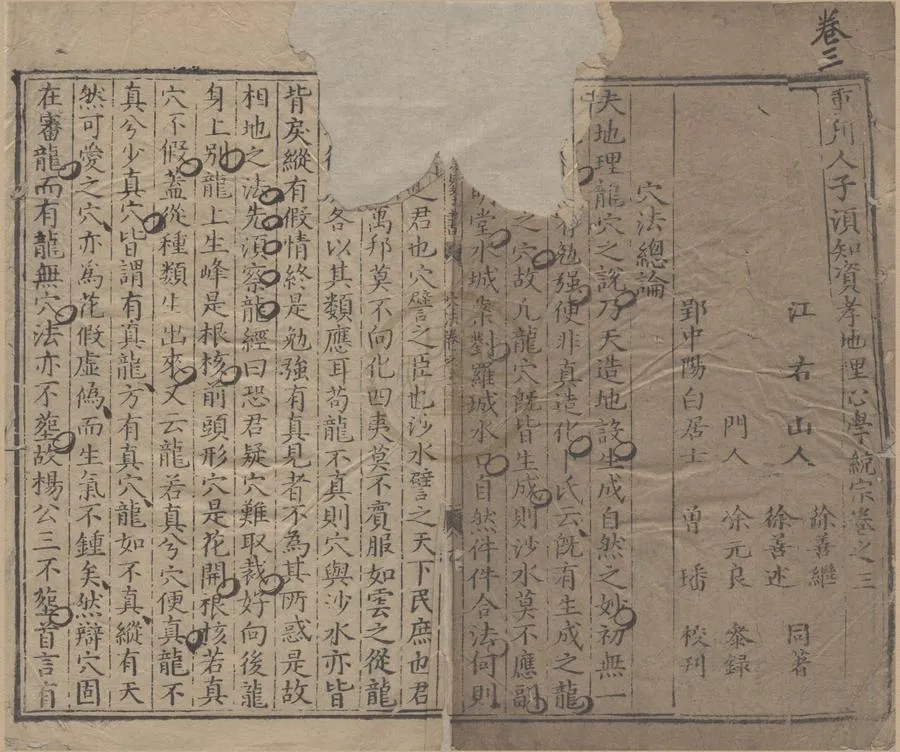 卷三
重刊人子須知資孝地理心學統宗卷之三
江右山人
徐善繼
徐善述
同著
門人
涂元良
叅録
鄞中陽白居士
曾璠
校刊
穴法總論
夫地理龍穴之說乃天造地設生成自然之妙初無一
勉强便非真造化卜氏云旣有生成之龍
之穴故凡龍穴旣皆生成則沙水莫不應副
明堂水城案對羅城水口自然件件合法何則
穴法卷之三
君也穴譬之臣也沙水譬之天下民庶也君
萬邦莫不向化四夷莫不賓服如雲之從龍
各以其類應耳苟龍不真則穴與沙水亦皆
背矣縱有假情終是勉強有真見者不為其所惑是故
相地之法先須察龍經曰恐君疑穴難取裁好向後龍
身上别龍上生峰是根核前頭形穴是花開根核若真
穴不假蓋從種類生出來又云龍若真兮穴便真龍不
真兮少真穴皆謂有真龍方有真穴龍如不真縱有天
然可愛之穴亦為花假虛僞而生氣不鍾矣然辯穴固
在審龍而有龍無穴法亦不塟故楊公三不塟首言有